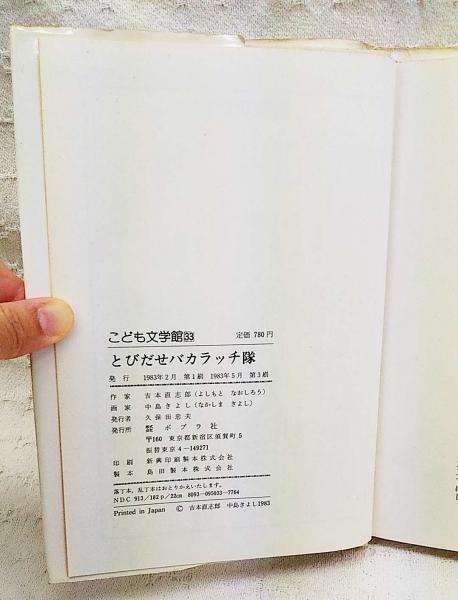 こども文学館33 定価 780円
とびだせバカラッチ隊
発行 1983年2月 第1刷 1983年5月 第3刷
作家 吉本直志郎(よしもと なおしろう)
画家 中島きよし(なかしま きよし)
発行者 久保田忠夫
発行所 株式会社 ポプラ社
〒160 東京都新宿区須賀町5
振替東京4-149271
印刷 新興印刷製本株式会社
製本 島田製本株式会社
落丁本、乱丁本はおとりかえいたします。
NDC 913/182p/22cm 8093-095033-7764
Printed in Japan © 吉本直志郎 中島きよし1983